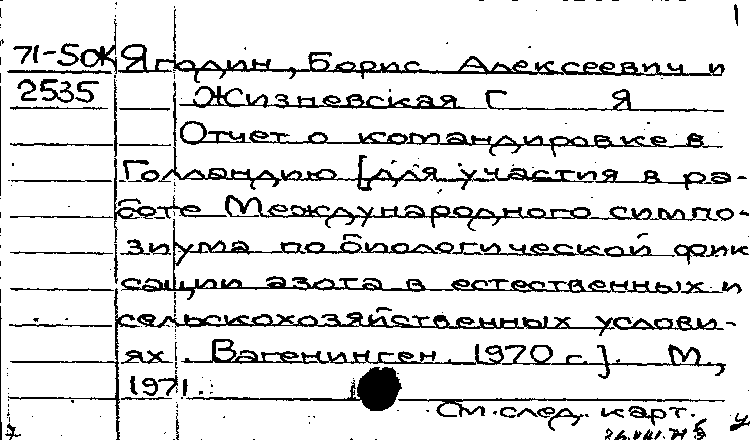 1
71-5ОК Ягодин, Борис Алексеевич и
2535 Жизневская Г Я
Отчет о командировке в
Голландию [для участия в ра-
боте Международного симпо-
зиума по биологической фик
сации азота в естественных и
сельскохозяйственных услови-
ях. Вагенинген. 1970 г.]. М.,
1971.
См. след. карт.